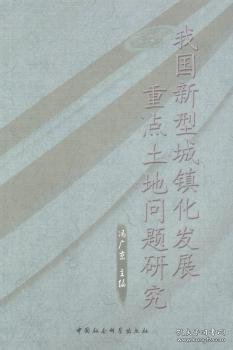 我国新型城镇化发展
重点土地问题研究
冯广京 主编
中国社会科学出版社